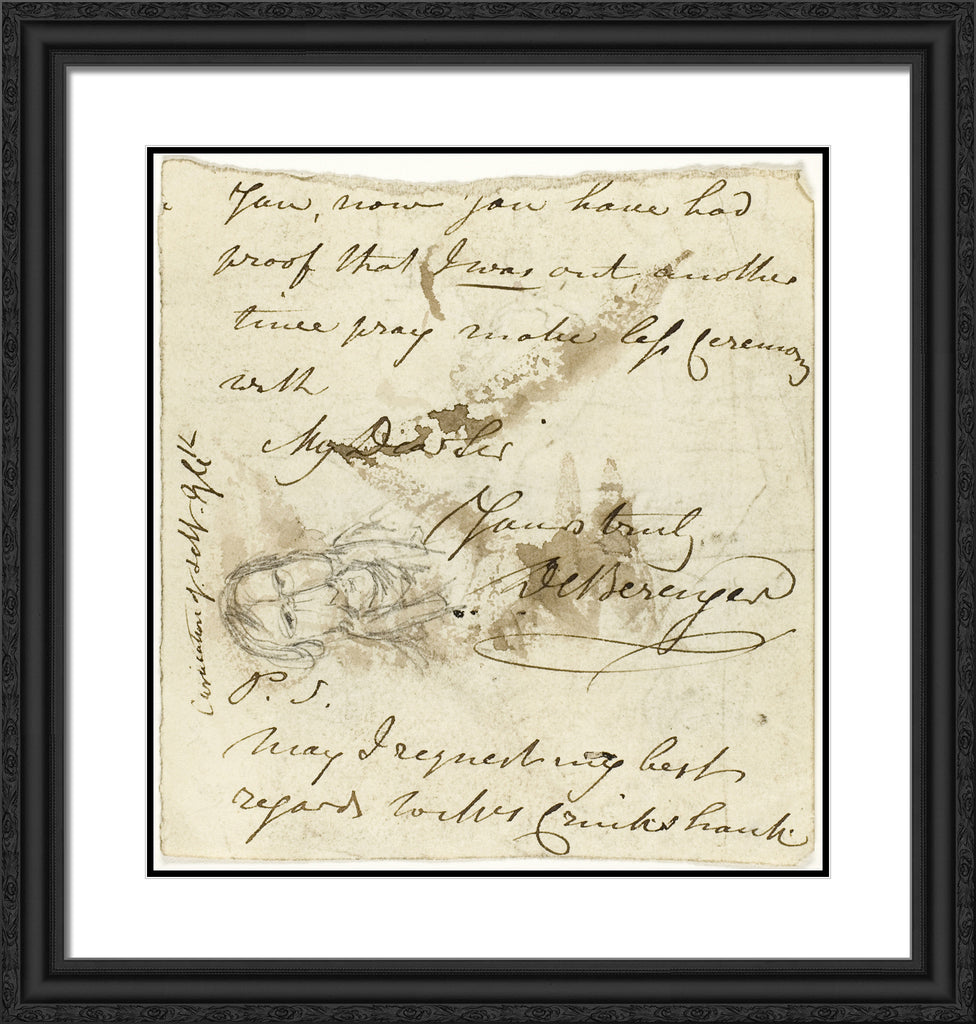 You, now you have had
proof that I was out, another
time pray make less Ceremony
with
My Dear Sir
Yours truly
DeBerenger
P. S.
May I request my best
regards to Mrs Cruikshank
Caricature of self. G